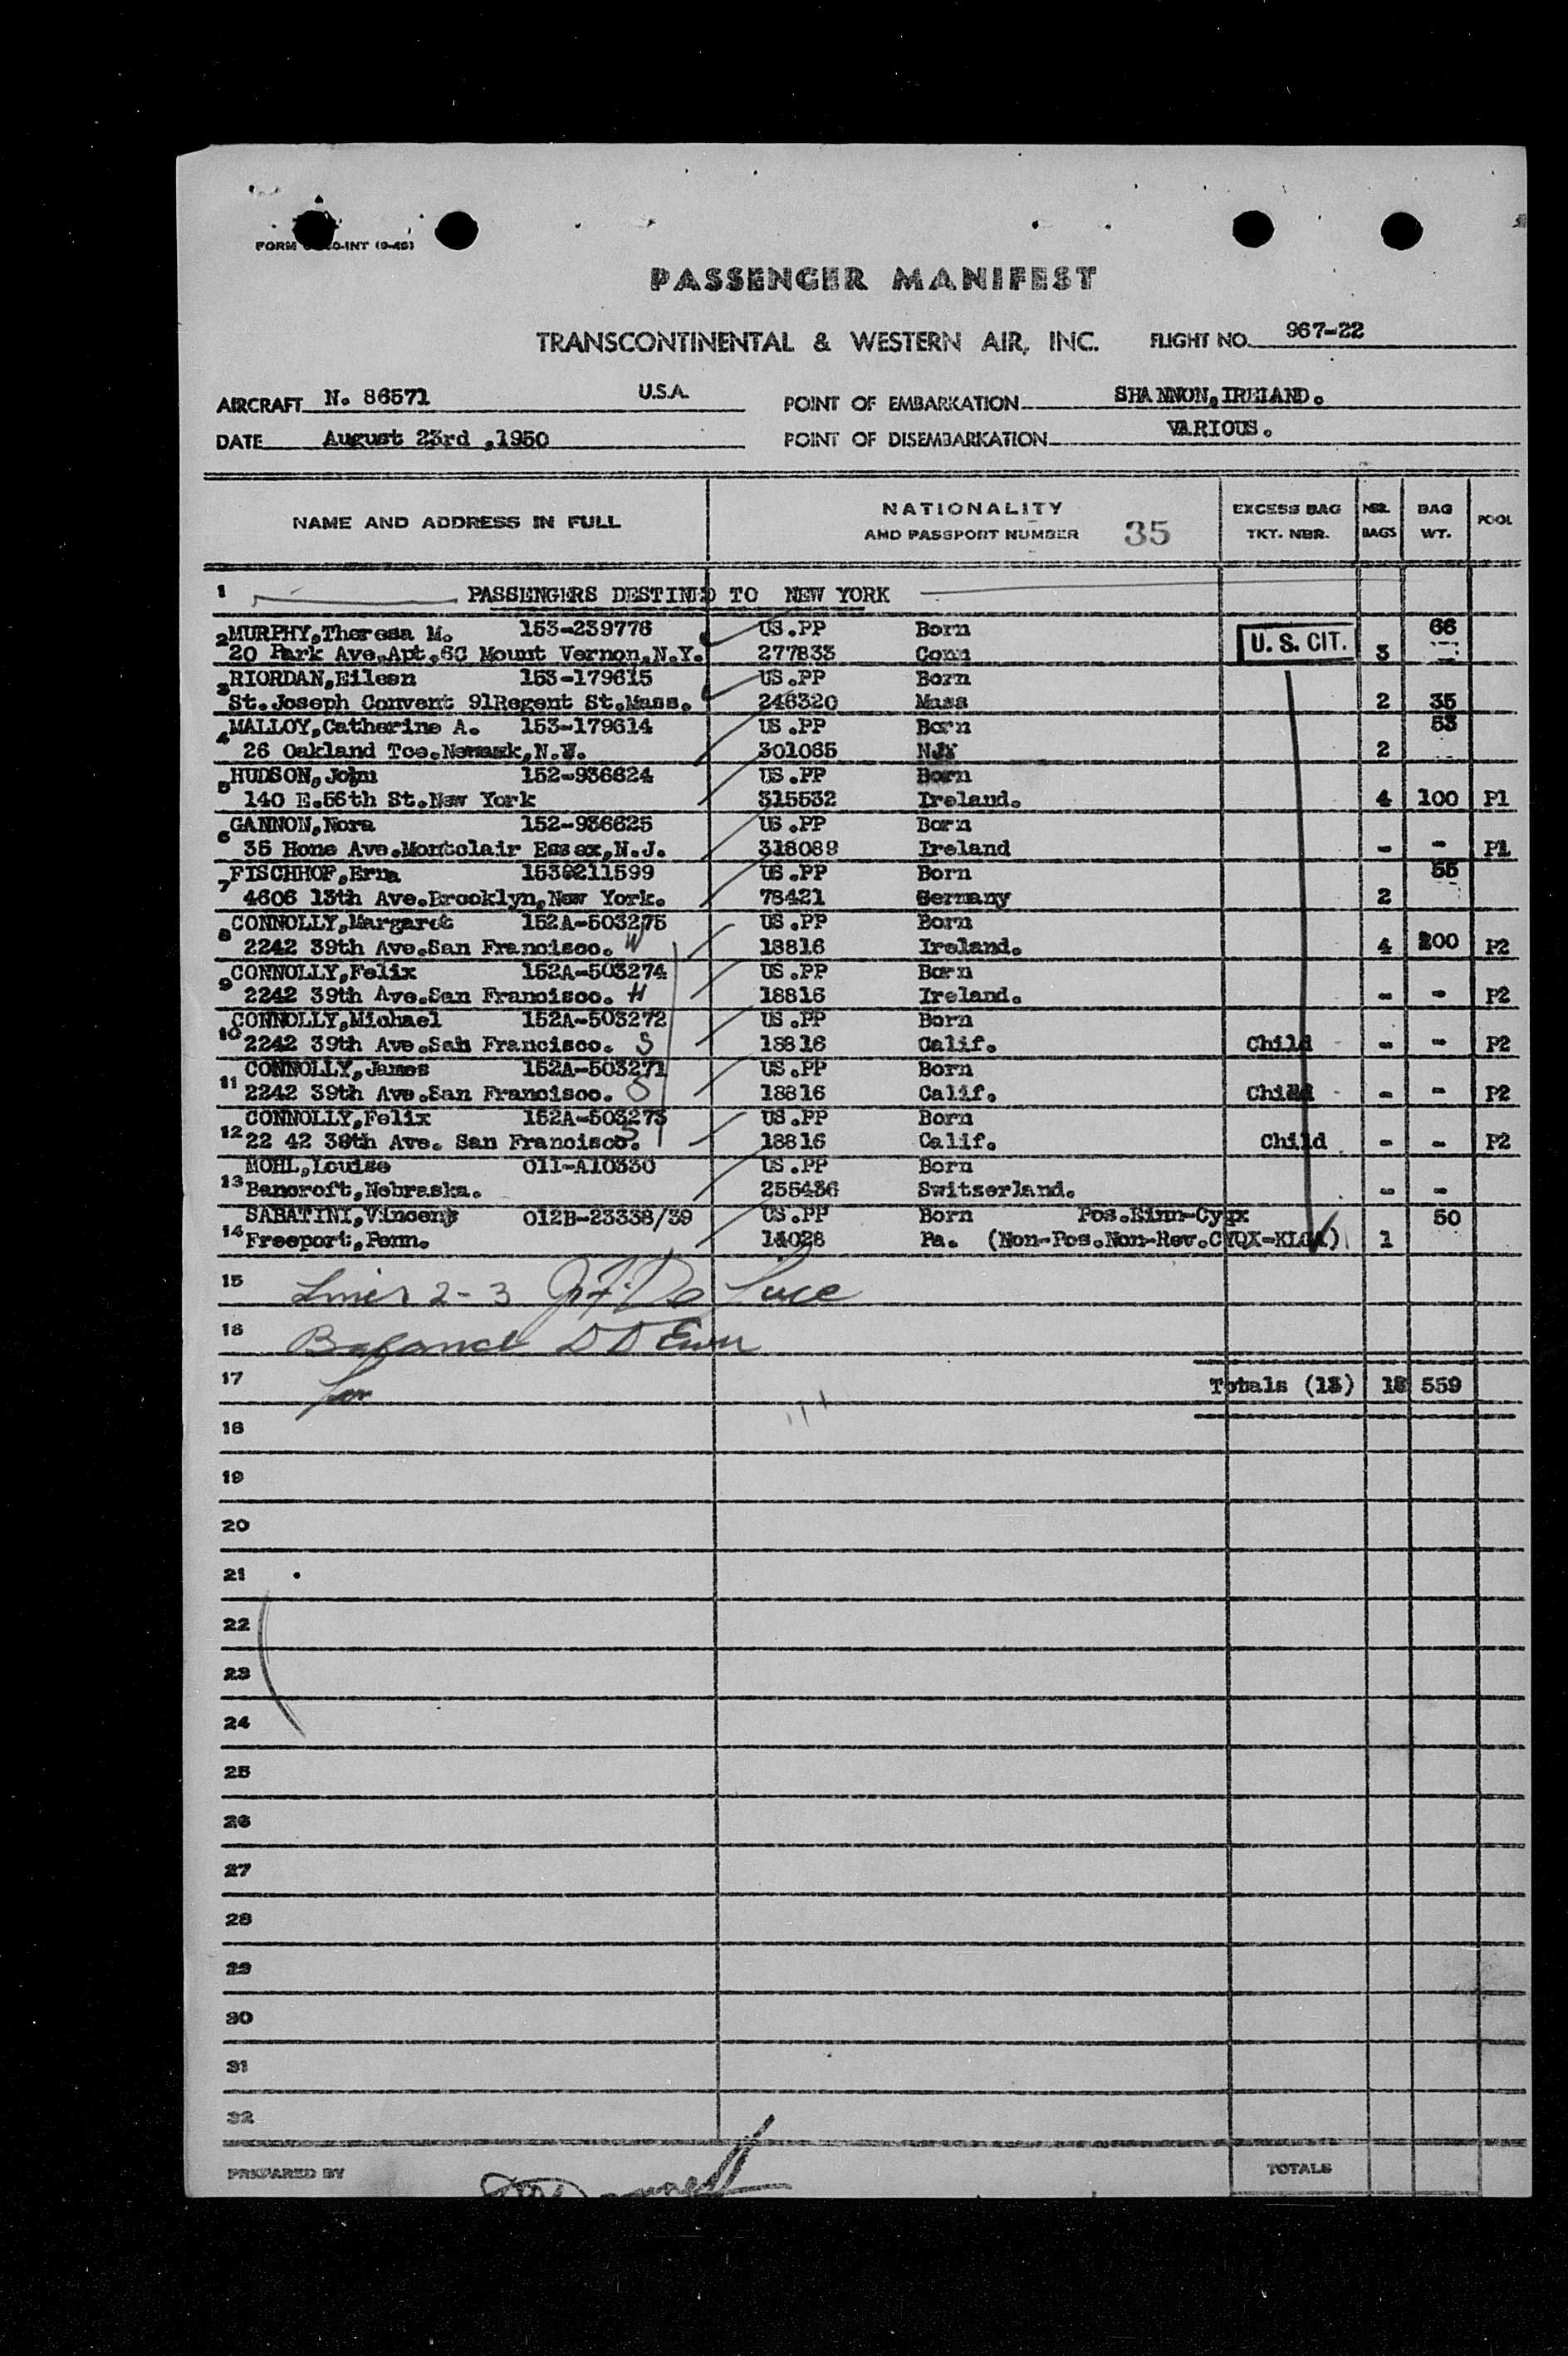 FORM 0-INT (9-48)
PASSENGER MANIFEST
TRANSCONTINENTAL & WESTERN AIR, INC. FLIGHT NO. 967-22
AIRCRAFT N. 86571 U.S.A. POINT OF EMBARKATION SHANNON,IRELAND.
DATE August 23rd ,1950 POINT OF DISEMBARKATION VARIOUS.
NAME AND ADDRESS IN FULL NATIONALITY EXCESS BAG NBR. BAG POOL
AND PASSPORT NUMBER 35 TKT. NBR. BAGS WT.
1 PASSENGERS DESTINED TO NEW YORK
2 MURPHY,Theresa M. 153-239776 US.PP Born U. S. CIT. 66
20 Park Ave.Apt.6C Mount Vernon,N.Y. 277833 Conn 3
3 RIORDAN,Eileen 153-179615 US.PP Born
St.Joseph Convent 91Regent St.Mass. 246320 Mass 2 35
4 MALLOY,Catherine A. 153-179614 US.PP Born 53
26 Oakland Tce.Newark,N.W. 301065 NJ 2
5 HUDSON,John 152-936624 US.PP Born
140 E.56th St.New York 315532 Ireland. 4 100 P1
6 GANNON,Nora 152-936625 US.PP Born
35 Hone Ave.Montclair Essex,N.J. 318089 Ireland - - P1
7 FISCHHOF,Erna 153-211599 US.PP Born 55
4606 13th Ave.Brooklyn,New York. 78421 Germany 2
8 CONNOLLY,Margaret 152A-503275 US.PP Born
2242 39th Ave.San Francisco. W 18816 Ireland. 4 200 P2
9 CONNOLLY,Felix 152A-503274 US.PP Born
2242 39th Ave.San Francisco. H 18816 Ireland. - - P2
10 CONNOLLY,Michael 152A-503272 US.PP Born
2242 39th Ave.San Francisco. S 18816 Calif. Child - - P2
11 CONNOLLY,James 152A-503271 US.PP Born
2242 39th Ave.San Francisco. S 18816 Calif. Child - - P2
12 CONNOLLY,Felix 152A-503273 US.PP Born
22 42 39th Ave. San Francisco. S 18816 Calif. Child - - P2
13 MOHL,Louise 011-A10330 US.PP Born
Bancroft,Nebraska. 255436 Switzerland. - -
14 SABATINI,Vincent 012B-23338/39 US.PP Born Pos.Einn-Cyqx 50
Freeport,Penn. 14028 Pa. (Non-Pos.Non-Rev.CYQX-KLGA) 1
15 Lines 2-3
16 Balance
17 Totals (13) 18 559
18
19
20
21
22
23
24
25
26
27
28
29
30
31
32
PREPARED BY TOTALS